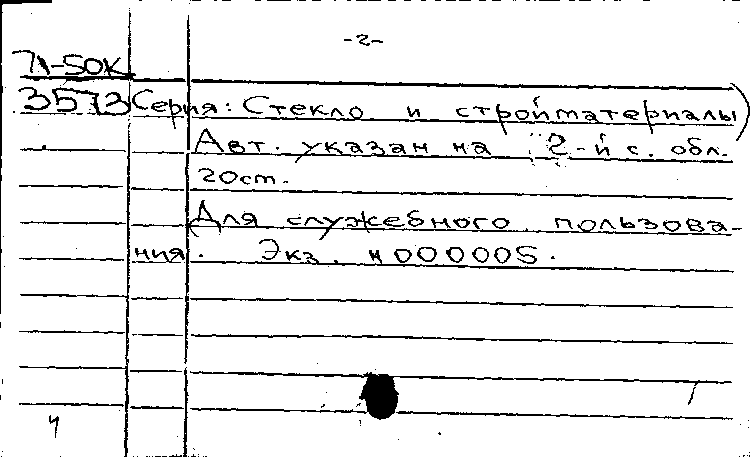 -2-
71-50К
3573 Серия: Стекло и стройматериалы)
Авт. указан на 2-й с. обл.
20см.
Для служебного пользова-
ния. Экз. н000005.
4